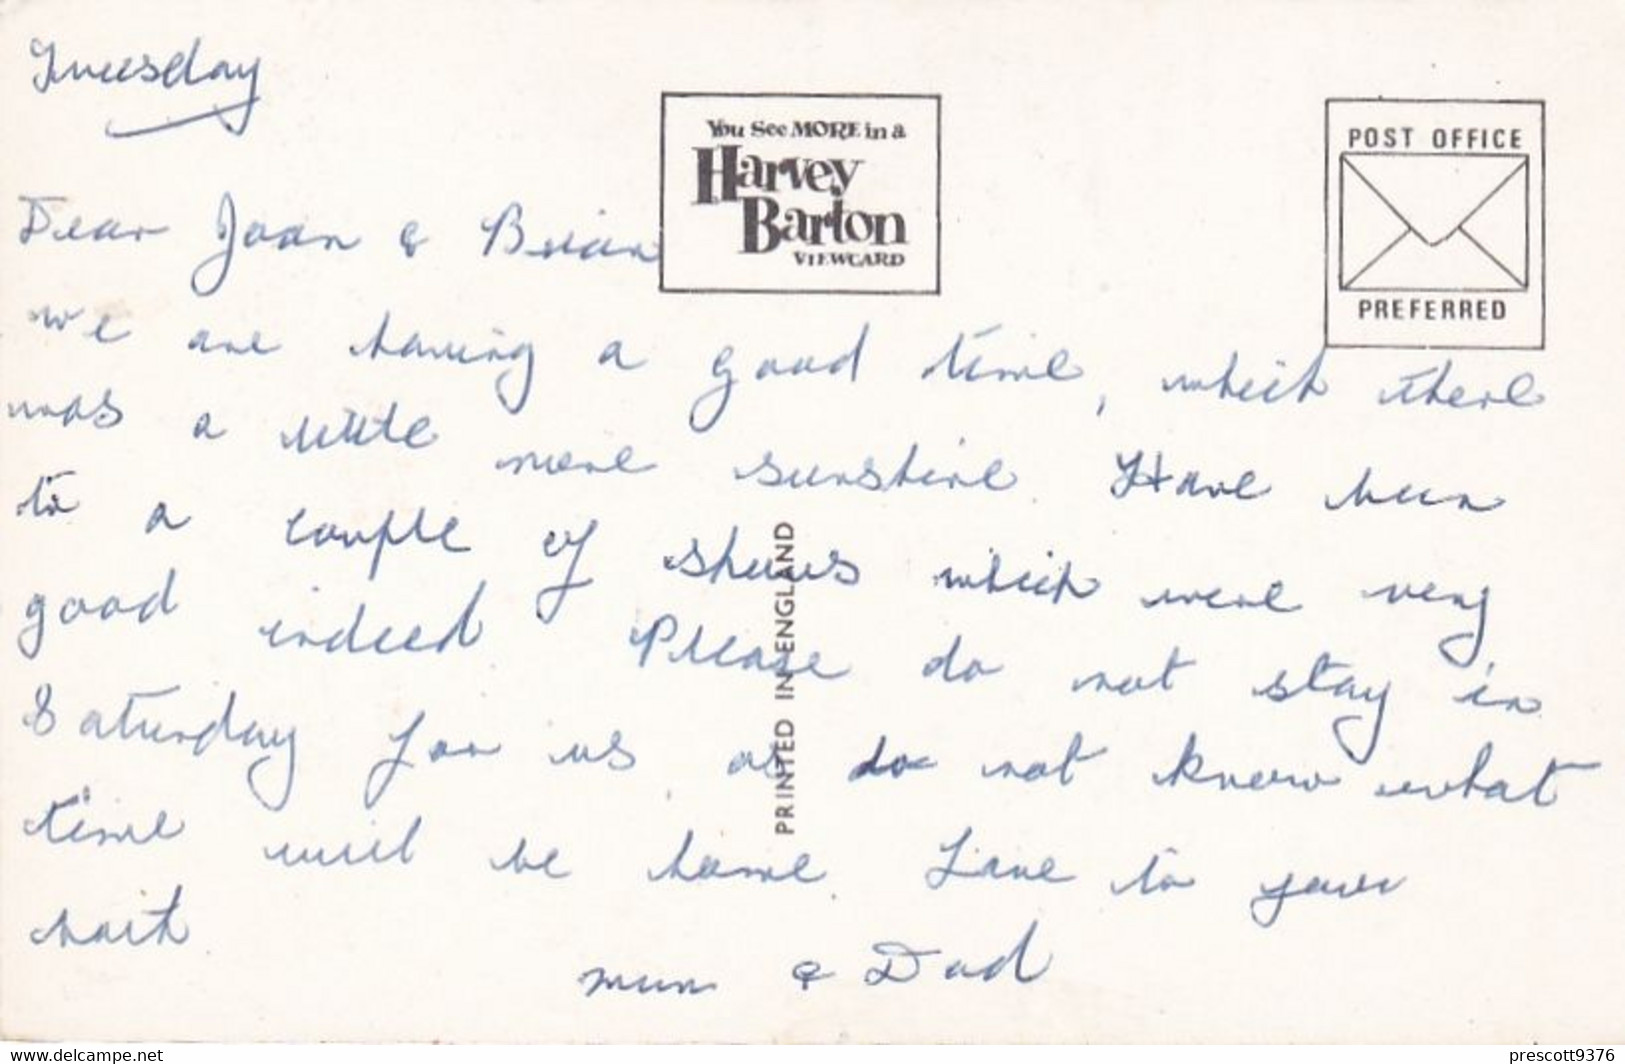 Tuesday
You See MORE in a
Harvey
Barton
VIEWCARD
POST OFFICE
PREFERRED
Dear Joan & Brian
we are having a good time, which there
was a little more sunshine. Have been
to a couple of shows which were very
good indeed Please do not stay in
Saturday for us as do not know what
time will be home. Love to you
both
Mum & Dad
PRINTED IN ENGLAND
Website: www.delcampe.net
prescott9376